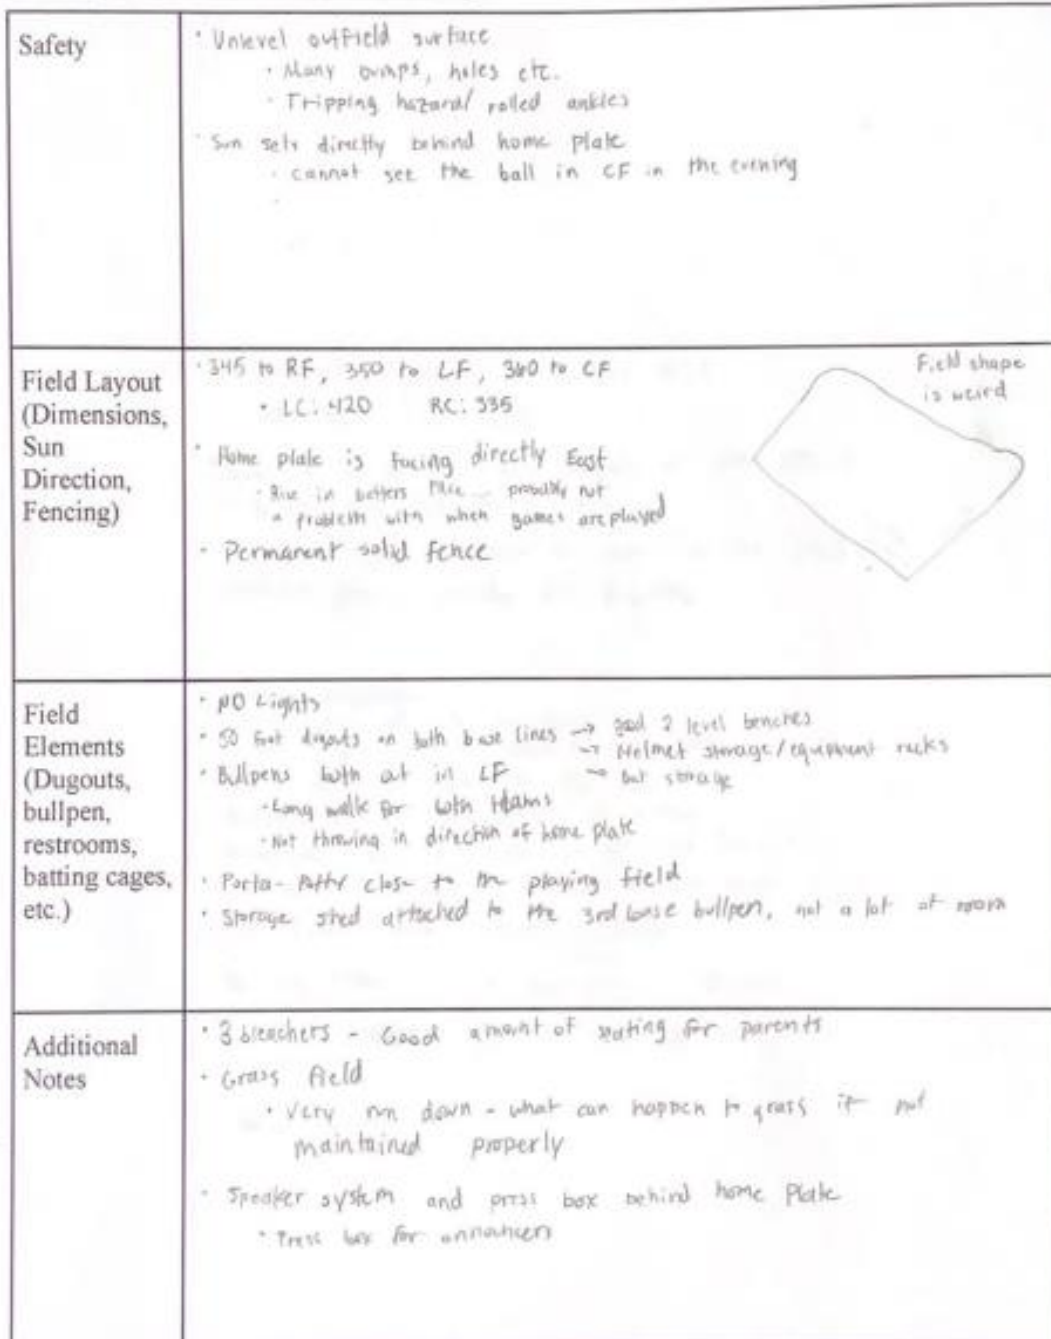 Safety
• Unlevel outfield surface
• Many bumps, holes etc.
• Tripping hazard/ rolled ankles
• Sun sets directly behind home plate
• cannot see the ball in CF in the evening
Field Layout
(Dimensions,
Sun
Direction,
Fencing)
• 345 to RF, 350 to LF, 360 to CF
• LC: 420 RC: 335
• Home plate is facing directly East
• in batters probably not
a problem with when games are played
• Permanent solid fence
Field shape
is weird
Field
Elements
(Dugouts,
bullpen,
restrooms,
batting cages,
etc.)
• NO Lights
• 50 foot dugouts on both base lines → 2 level benches
→ Helmet storage/equipment racks
→ Bat storage
• Bullpens both at in LF
• Long walk for both teams
• Not throwing in direction of home plate
• Porta-Potty close to the playing field
• Storage shed attached to the 3rd base bullpen, not a lot of room
Additional
Notes
• 3 bleachers - Good amount of seating for parents
• Grass field
• Very run down - what can happen to grass if not
maintained properly
• Speaker system and press box behind home plate
• Press box for announcers